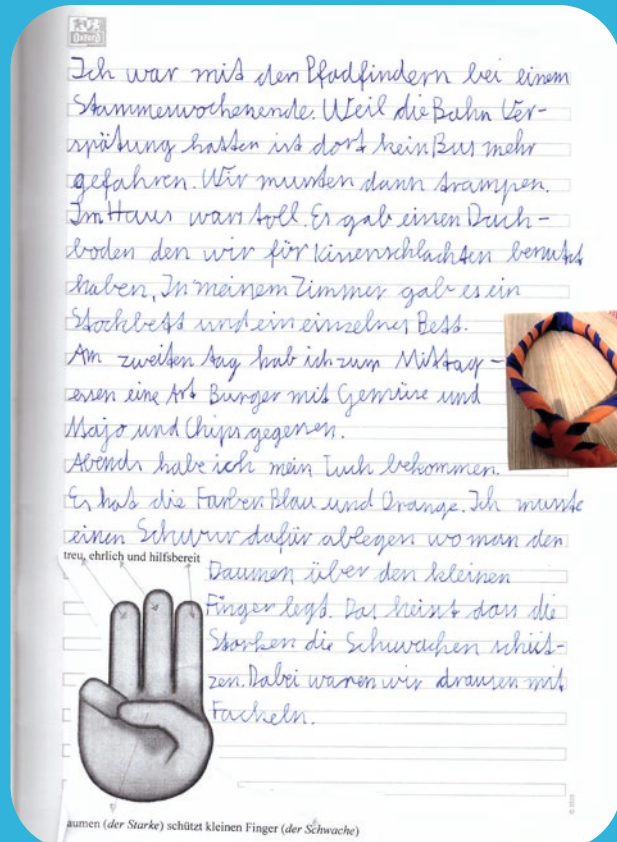 Oxford
Ich war mit den Pfadfindern bei einem
Stammeswochenende. Weil die Bahn Ver-
spätung hatten ist dort kein Bus mehr
gefahren. Wir mussten dann trampen.
Im Haus wars toll. Es gab einen Dach-
boden den wir für Kissenschlachten benutzt
haben. In meinem Zimmer gab es ein
Stockbett und ein einzelnes Bett.
Am zweiten tag hab ich zum Mittag-
essen eine Art Burger mit Gemüse und
Majo und Chips gegessen.
Abends habe ich mein Tuch bekommen.
Es hat die Farben Blau und Orange. Ich musste
einen Schwur dafür ablegen wo man den
treu, ehrlich und hilfsbereit
Daumen über den kleinen
Finger legt. Das heist dass die
Starken die Schwachen schüt-
zen. Dabei waren wir drausen mit
Fackeln.
aumen (der Starke) schützt kleinen Finger (der Schwache)